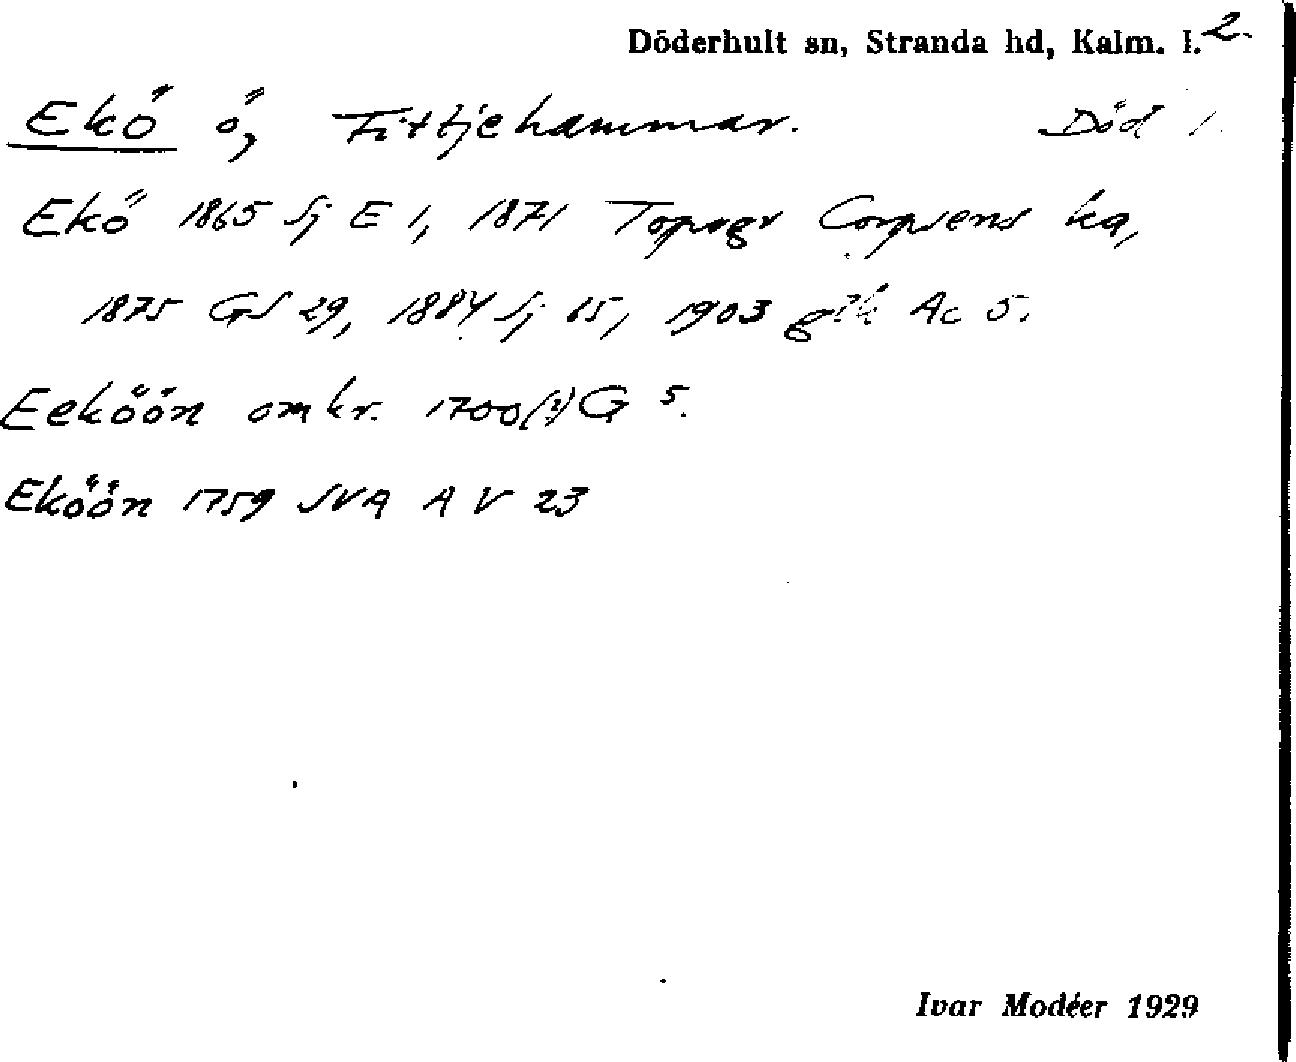 Döderhult sn, Stranda hd, Kalm. l. 2.
Ekö ö, Fittjehammar. Död 1.
Ekö 1865 Sj E 1, 1871 Topogr Corpsens ka,
1875 GS 29, 1884 Sj 65, 1903 Ac 5.
Eeköön omkr. 1700(?) G 5.
Eköön 1759 SVA A V 23
Ivar Modéer 1929